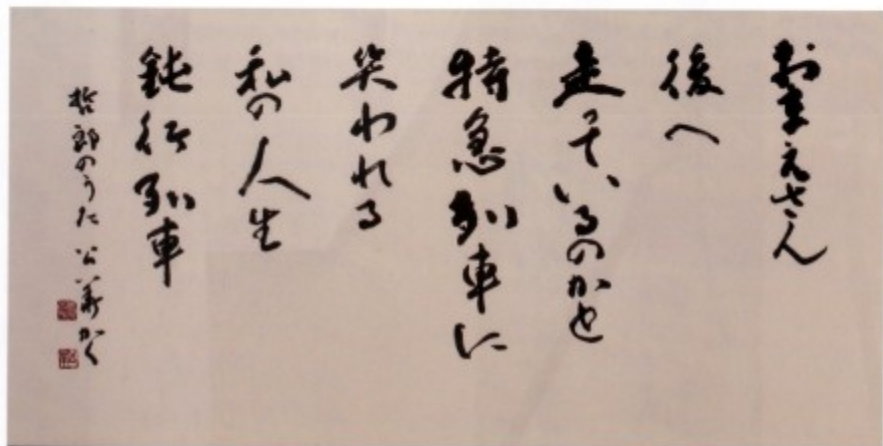 おまえさん
後へ
走っているのかと
特急列車に
笑われる
私の人生
鈍行列車
哲郎のうた 公華かく